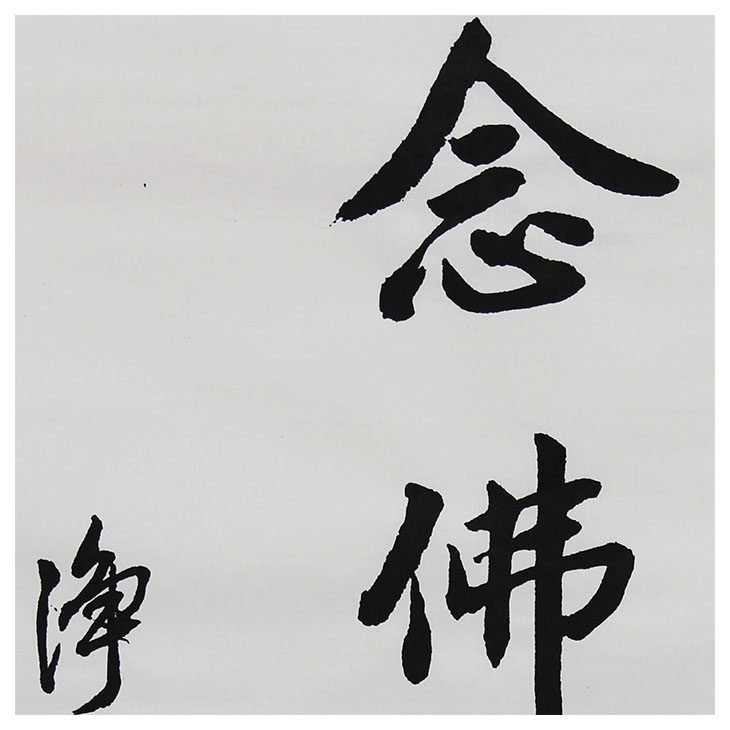 念佛
淨